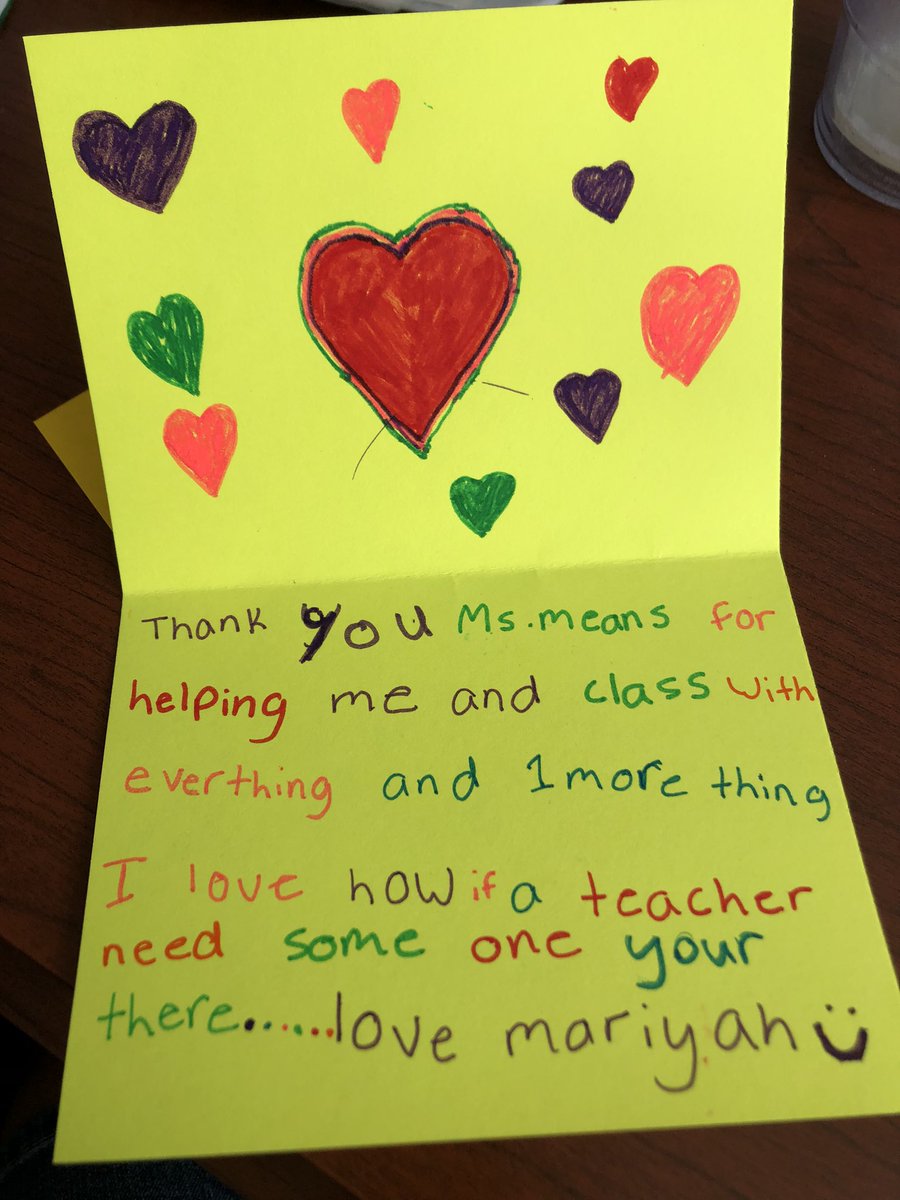 Thank you Ms.means for
helping me and class with
everthing and 1 more thing
I love how if a teacher
need some one your
there......love mariyah